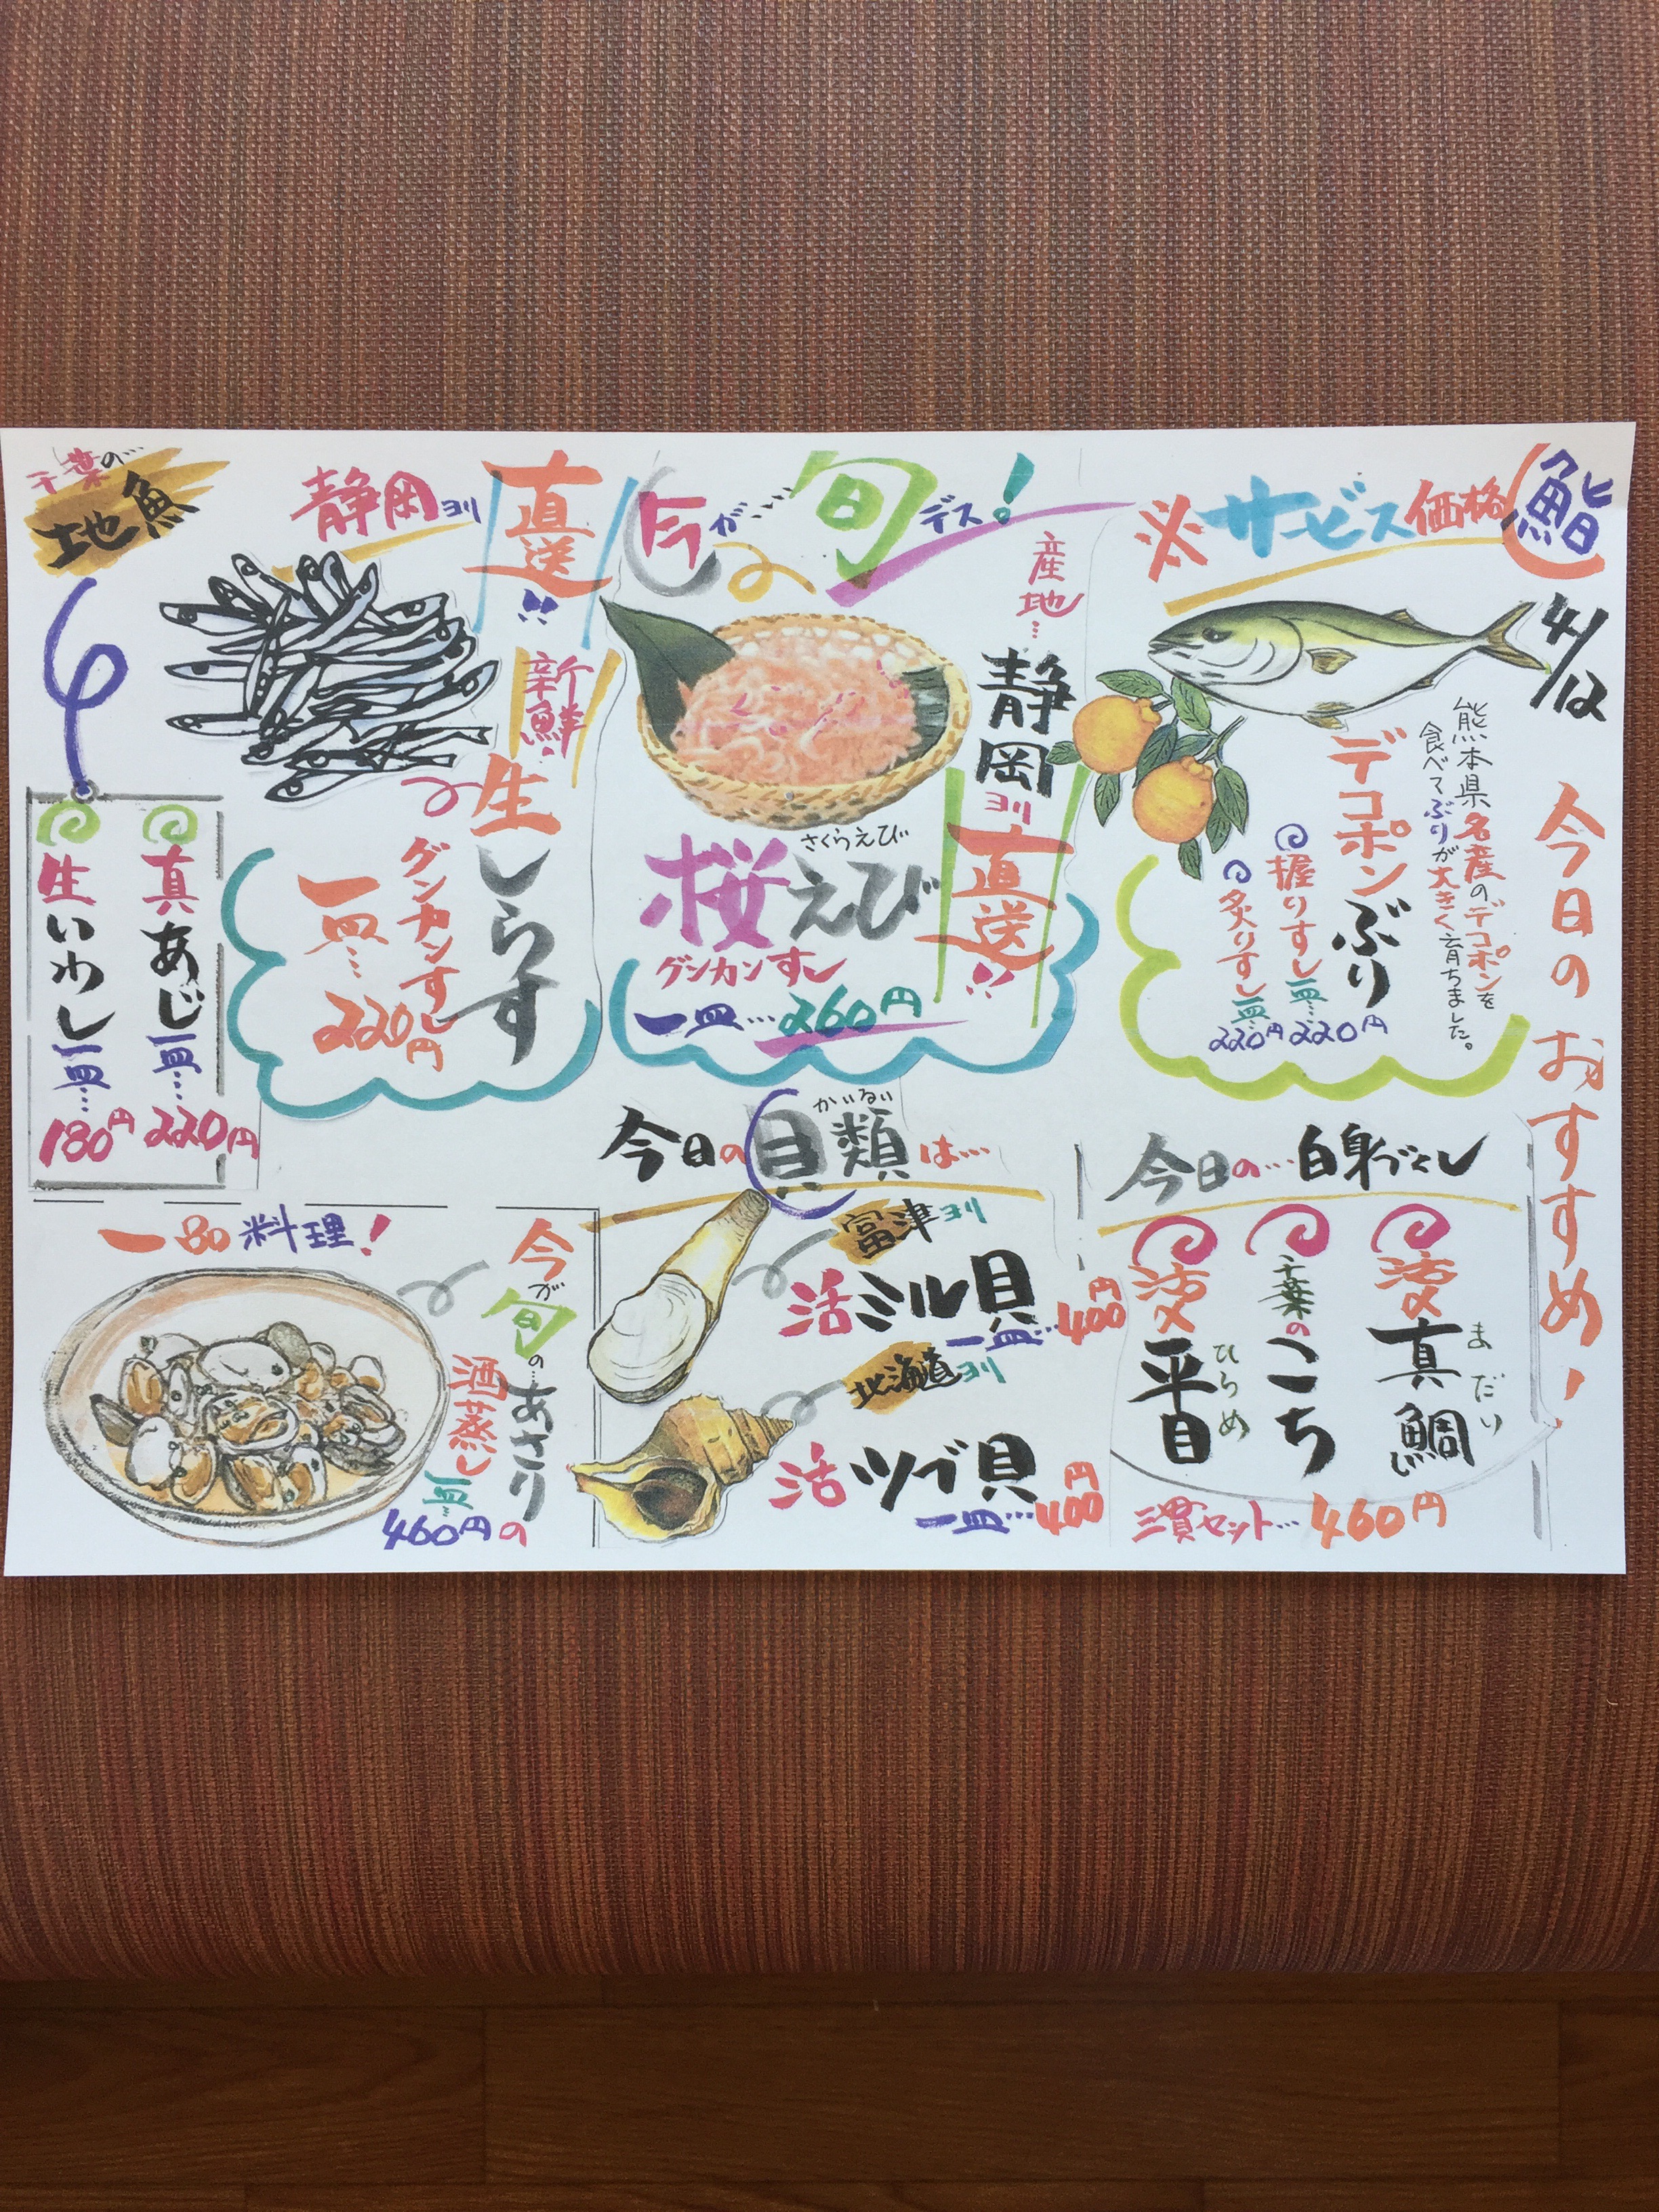 鮨
4/12
今日のおすすめ!
※サービス価格
熊本県名産のデコポンを
食べてぶりが大きく育ちました。
デコポンぶり
握りすし一皿…220円
炙りすし一皿…220円
今が…旬デス!
産地…
静岡ヨリ
直送!!
さくらえび
桜えび
グンカンすし
一皿…260円
静岡ヨリ
直送!!
新鮮!
生しらす
グンカンすし
一皿…220円
千葉の…
地魚
真あじ一皿…220円
生いわし一皿…180円
今日の…白身づくし
まだい
活〆真鯛
千葉のこち
ひらめ
活〆平目
三貫セット…460円
かいるい
今日の貝類は…
富津ヨリ
活ミル貝
一皿…400円
北海道ヨリ
活ツブ貝
一皿…400円
一品料理!
今が旬の…あさりの
酒蒸し
一皿…
460円